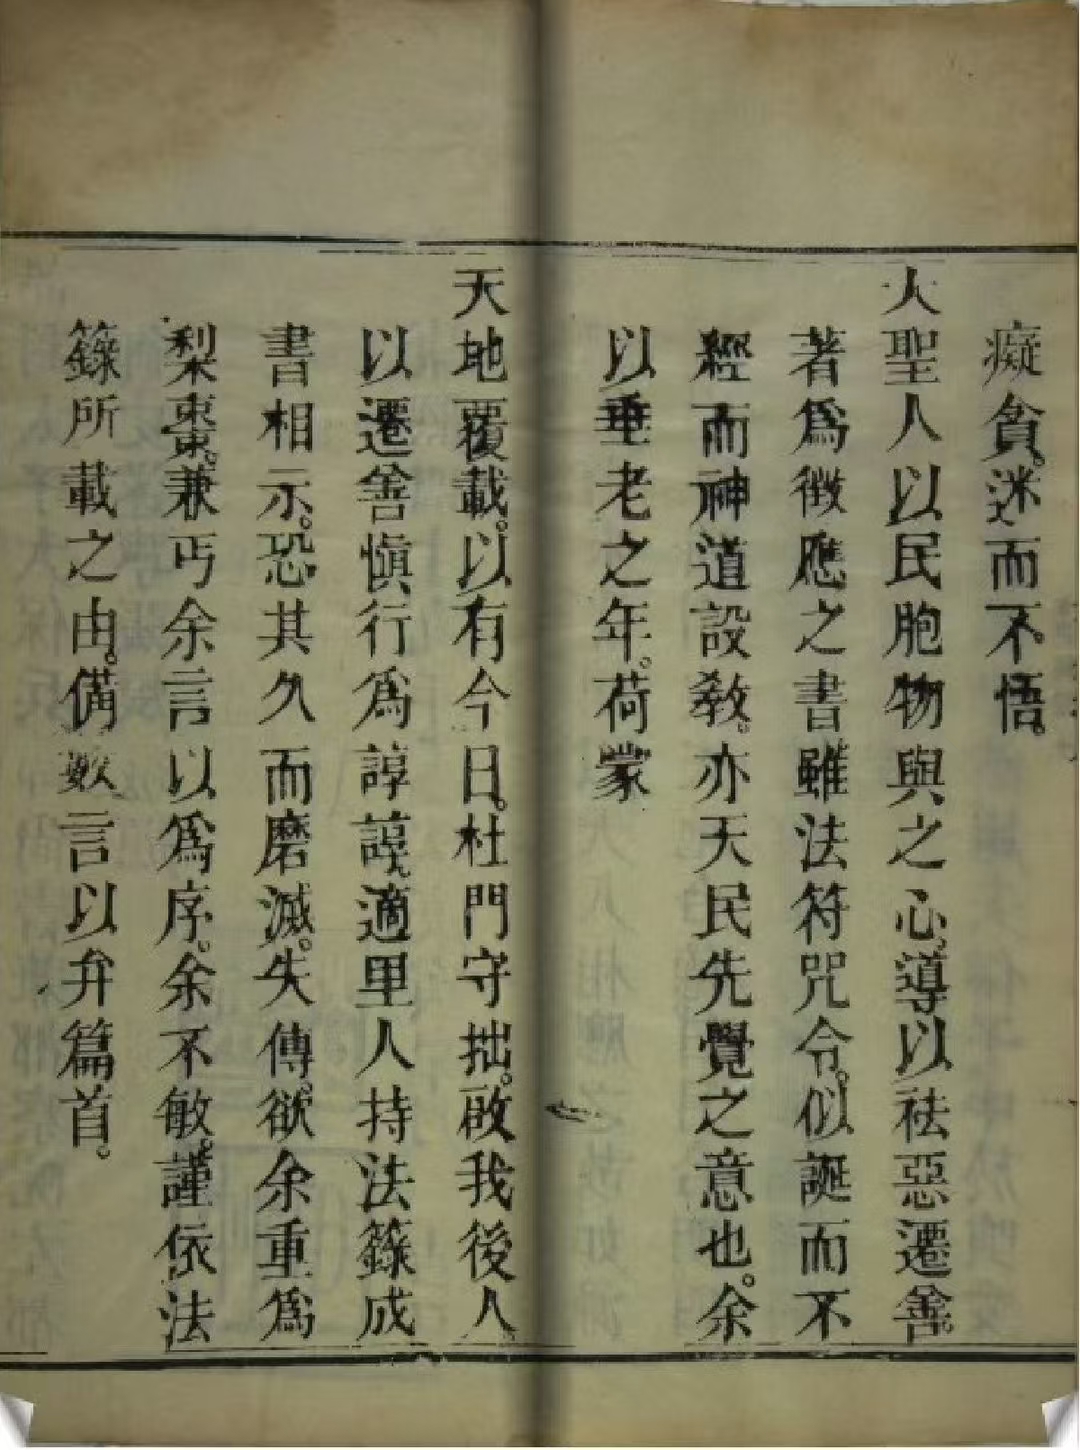 癡貪。迷而不悟。
大聖人以民胞物與之心。導以祛惡遷善。
著爲徵應之書雖法符咒令。似誕而不
經而神道設教。亦天民先覺之意也。余
以垂老之年。荷蒙
天地覆載。以有今日。杜門守拙。啟我後人。
以遷善愼行爲諄諄。適里人持法籙成
書相示。恐其久而磨滅。失傳。欲余重爲
梨棗。兼丐余言以爲序。余不敏。謹依法
籙所載之由。備數言以弁篇首。